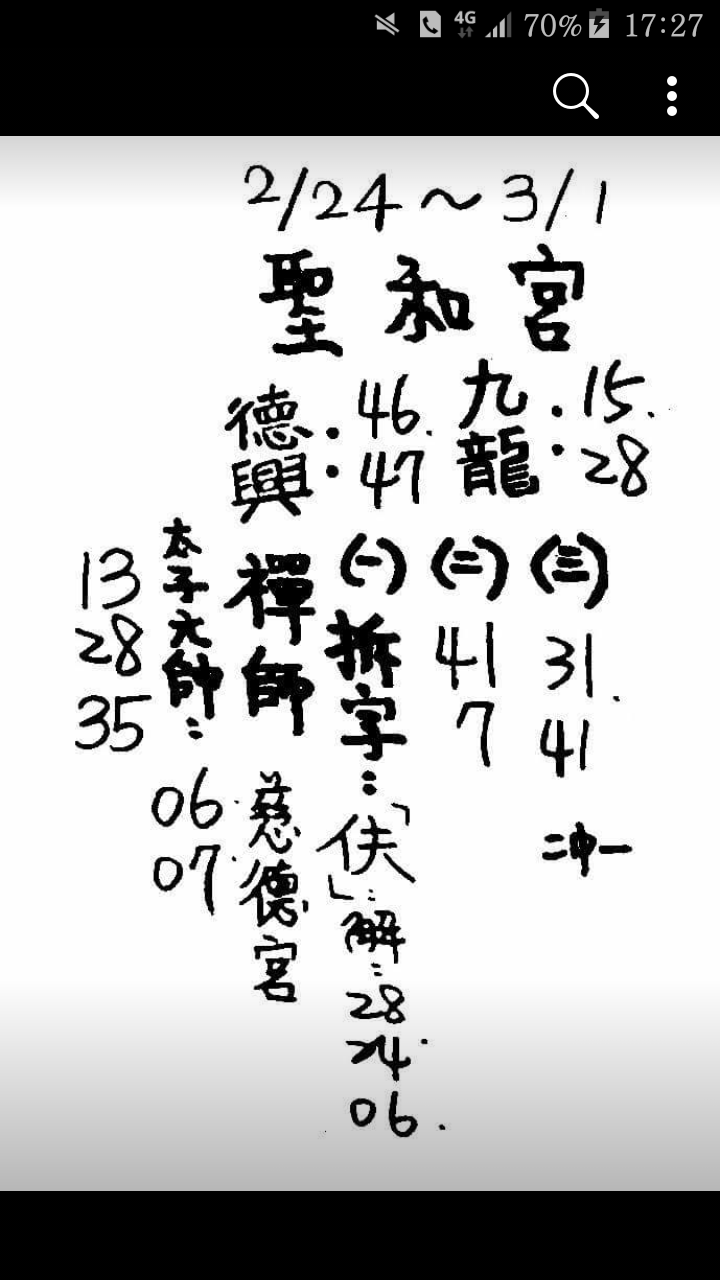 4G 70% 17:27
2/24～3/1
聖和宮
九龍：15. 28
德興：46. 47
(三) 31. 41 二冲一
(二) 41 7
(一) 拆字：「伕」：解：28 24. 06.
禪師
慈德宮
太子元帥： 06. 07.
13 28 35